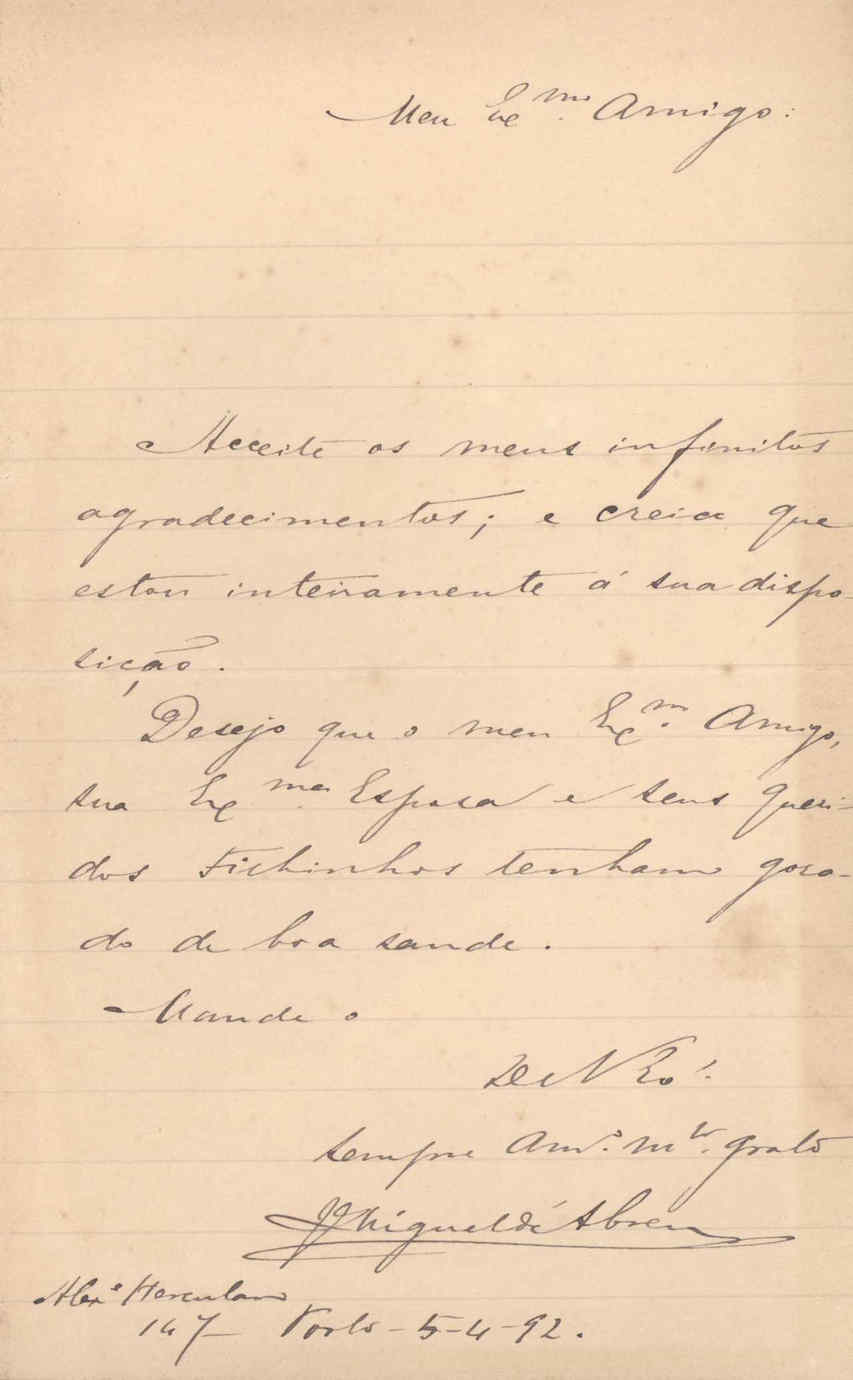 Meu Exmo. Amigo:
Acceite os meus infinitos
agradecimentos; e creia que
estou inteiramente á sua dispo-
sição.
Desejo que o meu Exm. Amigo,
sua Exma. Esposa e seus queri-
dos Fichinhos tenham gosa-
do de boa saude.
Mande o
De V Ex.
sempre Amo. mto. grato
J Miguel de Abreu
Alexe Herculano
147 Porto - 5-4-92.